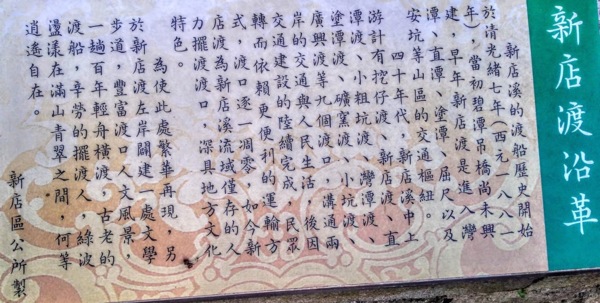 新店渡沿革
新店溪的渡船歷史開始
於清光緒七年(西元一八八一
年),當初碧潭吊橋尚未興
建,早年新店渡是進入灣
潭、直潭、塗潭、屈尺以及
安坑等山區的交通樞紐。
四十年代,新店溪中上
游計有挖仔渡、新店渡、直
潭渡、小粗坑渡、灣潭渡、
塗潭渡、礦窯渡、小坑渡、
廣興渡等九個渡口,溝通兩
岸的交通與人民生活,後因
交通建設的陸續完成,民眾
轉而依賴更便利的運輸方
式,渡口逐一凋零,如今新
店渡為新店溪流域僅存的人
力擺渡渡口,深具地方文化
特色。
為使此處繁華再現,另
於新店渡左岸闢建一處文學
步道,豐富渡口人文風景,
一趟百年輕舟橫渡,古老的
渡船,辛勞的擺渡人,綠波
盪漾在滿山青翠之間,何等
逍遙自在。
新店區公所製